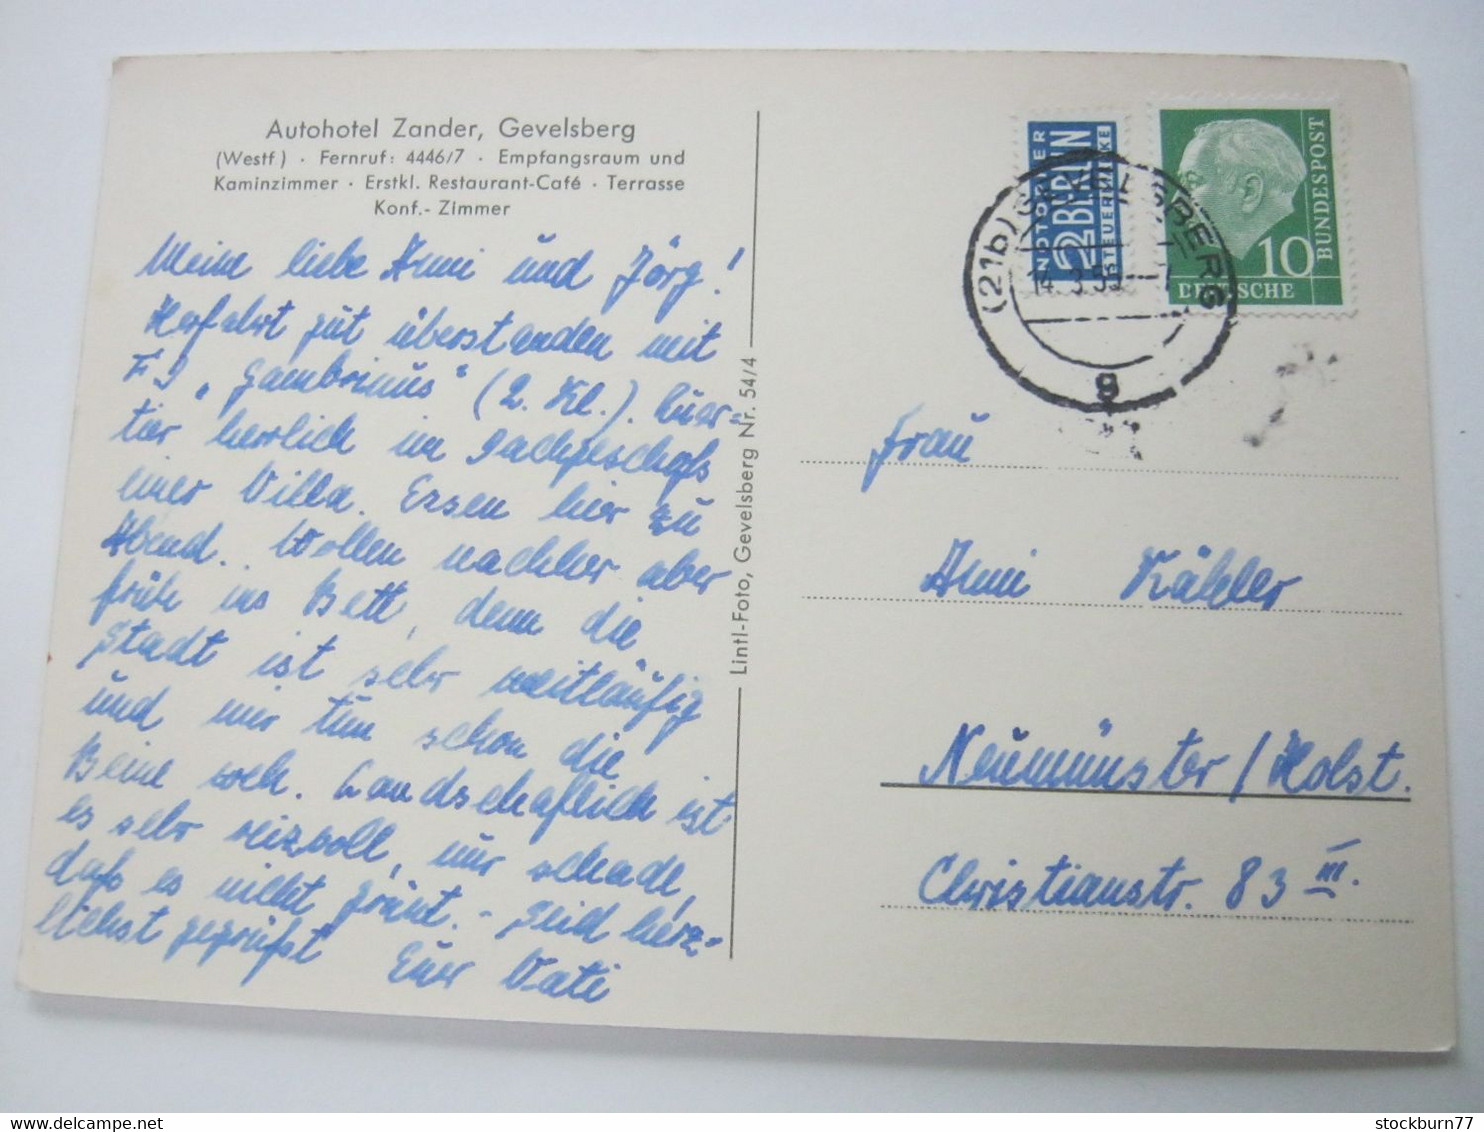 Autohotel Zander, Gevelsberg
(Westf) · Fernruf: 4446/7 · Empfangsraum und
Kaminzimmer · Erstkl. Restaurant-Café · Terrasse
Konf.- Zimmer
Meine liebe Anni und Jörg!
Herfahrt gut überstanden mit
FD „Gambrinus" (2. Kl.). Quar-
tier herrlich im Dachgeschoß
einer Villa. Essen hier zu
Abend. Wollen nachher aber
früh ins Bett, denn die
Stadt ist sehr weitläufig
und mir tun schon die
Beine weh. Landschaftlich ist
es sehr reizvoll, nur schade,
daß es nicht grünt. - Seid herz-
lichst gegrüßt Euer Vati
Lintl-Foto, Gevelsberg Nr. 54/4
NOTOPFER
2 BERLIN
STEUERMARKE
10
BUNDESPOST
DEUTSCHE
(21b) GEVELSBERG
g
Frau
Anni Kähler
Neumünster/Holst.
Christianstr. 83 III.
stockburn77